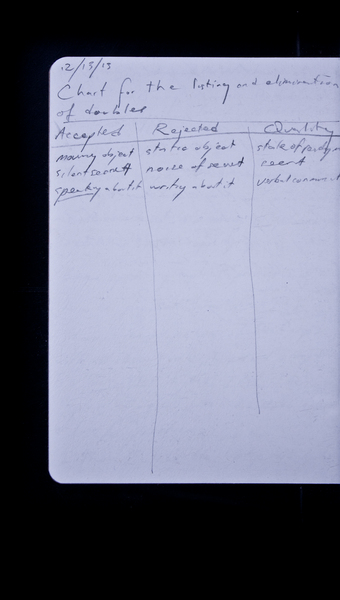 12/13/13
Chart for the listing and elimination
of doubles
Accepted Rejected Quality
moving object static object state of
silent secret noise of secret secret
speaking about it writing about it verbal